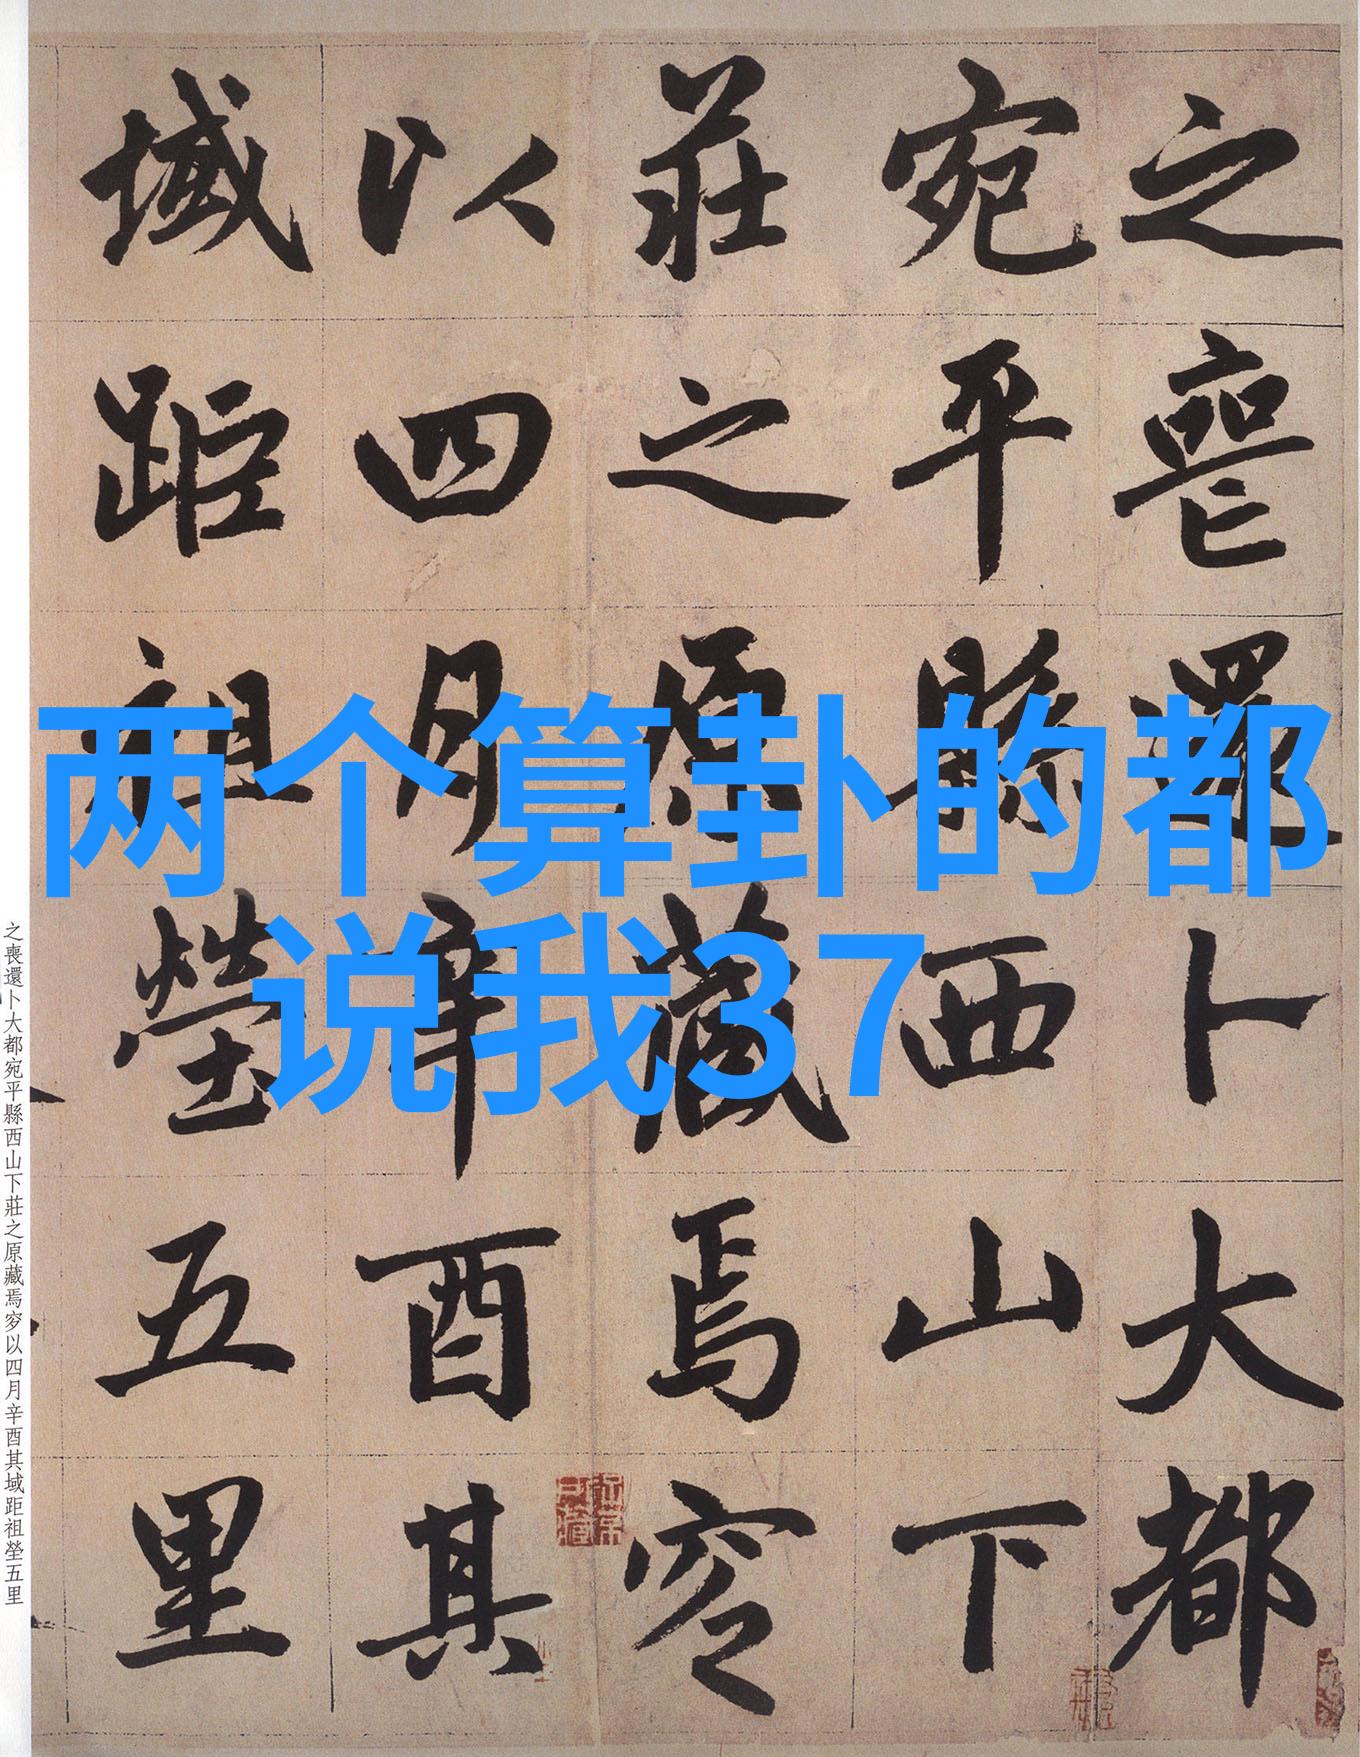 之喪還卜大都
宛平縣西山下
莊之原藏焉穸
以四月辛酉其
域距祖塋五里
两个算卦的都
说我37
之喪還卜大都宛平縣西山下莊之原藏焉穸以四月辛酉其域距祖塋五里